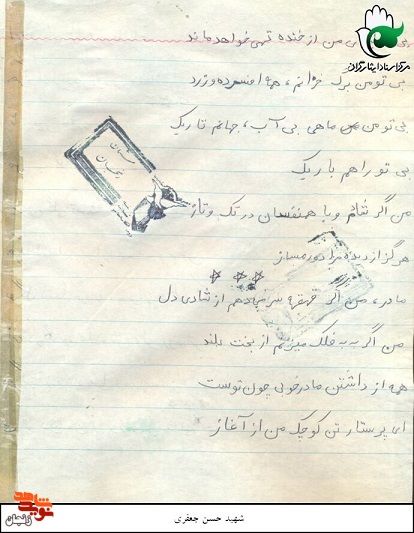 مرکز اسناد ایثارگران
بی من از خنده تهی خواهد ماند
بی تو من برگ خزانم، همه افسرده و زرد
بی تو من ماهی بی آب، جهانم تاریک
بی تو راهم باریک
من اگر شادم و با همنفسان در تک و تاز
هرگز از دیده مرا دور مساز
مادر، من اگر قهقهه سر میدهم از شادی دل
من اگر به فلک میزنم از بخت بلند
همه از داشتن مادر خوبی چون توست
ای پرستار تن کوچک من از آغاز
نوید شاهد
زنجان
شهید حسن جعفری